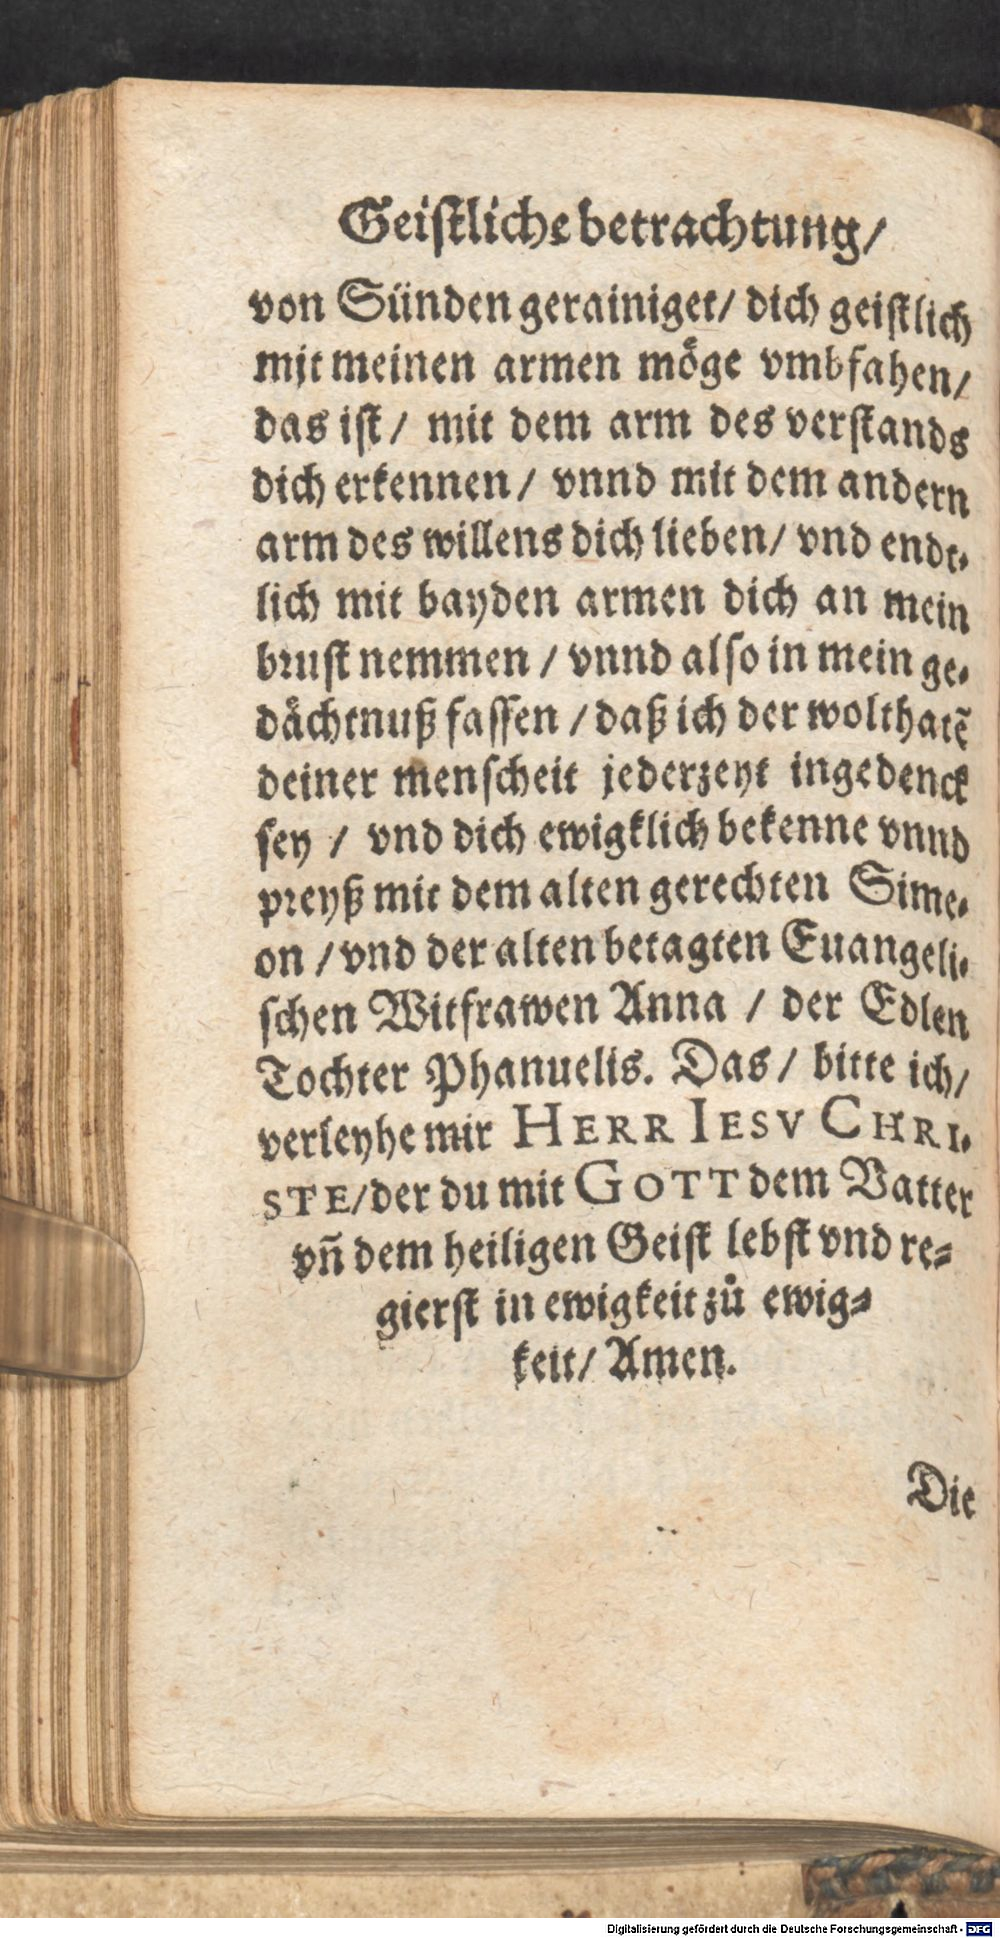 Geistliche betrachtung/
von Sünden gerainiget/ dich geistlich
mit meinen armen möge vmbfahen/
das ist/ mit dem arm des verstands
dich erkennen/ vnnd mit dem andern
arm des willens dich lieben/ vnd endt-
lich mit bayden armen dich an mein
brust nemmen/ vnnd also in mein ge-
dåchtnuß fassen/ daß ich der wolthatẽ
deiner menscheit jederzeyt ingedenck
sey/ vnd dich ewigklich bekenne vnnd
preyß mit dem alten gerechten Sime-
on/ vnd der alten betagten Euangeli-
schen Witfrawen Anna/ der Edlen
Tochter Phanuelis. Das/ bitte ich/
verleyhe mir HERR IESV CHRI-
STE/ der du mit GOTT dem Vatter
vñ dem heiligen Geist lebst vnd re-
gierst in ewigkeit zů ewig-
keit/ Amen.
Die
Digitalisierung gefördert durch die Deutsche Forschungsgemeinschaft - DFG